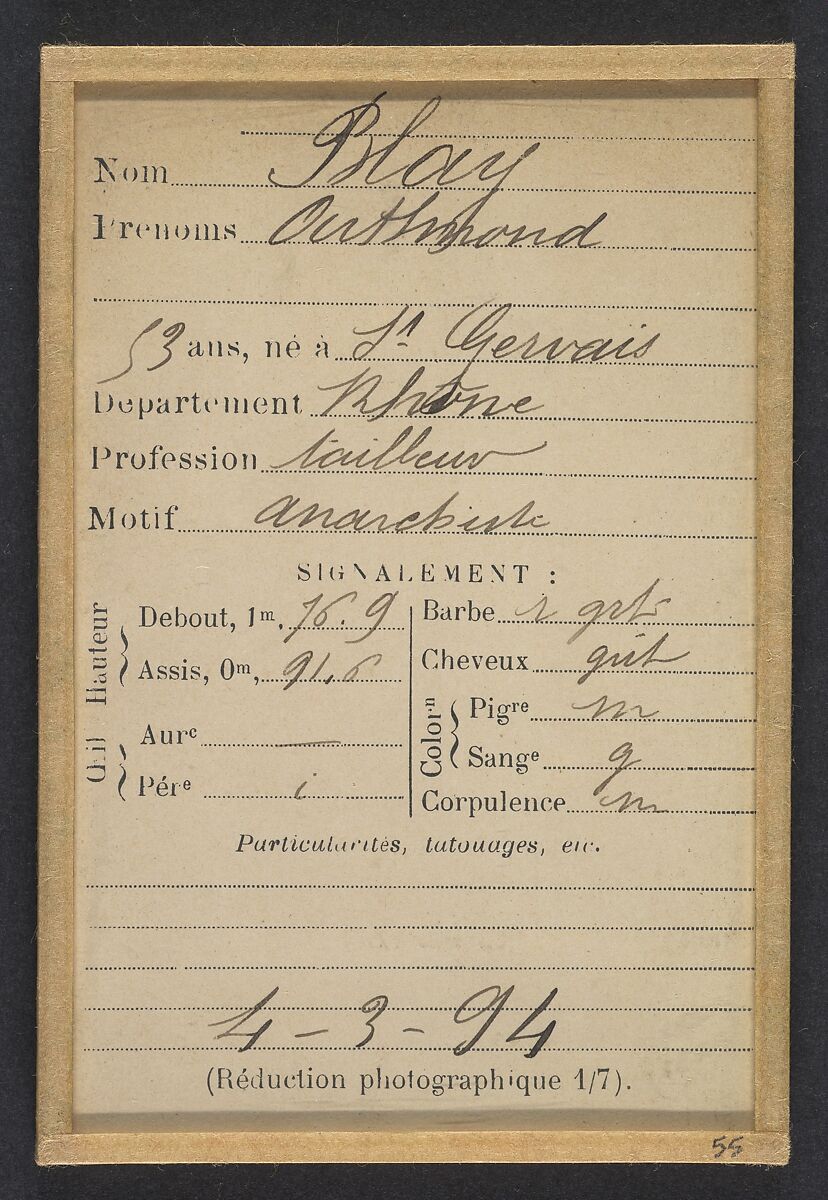 Nom Blay
Prénoms Outhmond
53 ans, né à St Gervais
Département Rhône
Profession tailleur
Motif anarchiste
SIGNALEMENT :
Hauteur
Debout, 1m, 76.9
Assis, 0m, 91,6
Œil
Aure —
Pére i
Barbe grt
Cheveux grit
Colorn
Pigre m
Sange g
Corpulence m
Particularités, tatouages, etc.
4-3-94
(Réduction photographique 1/7).
55